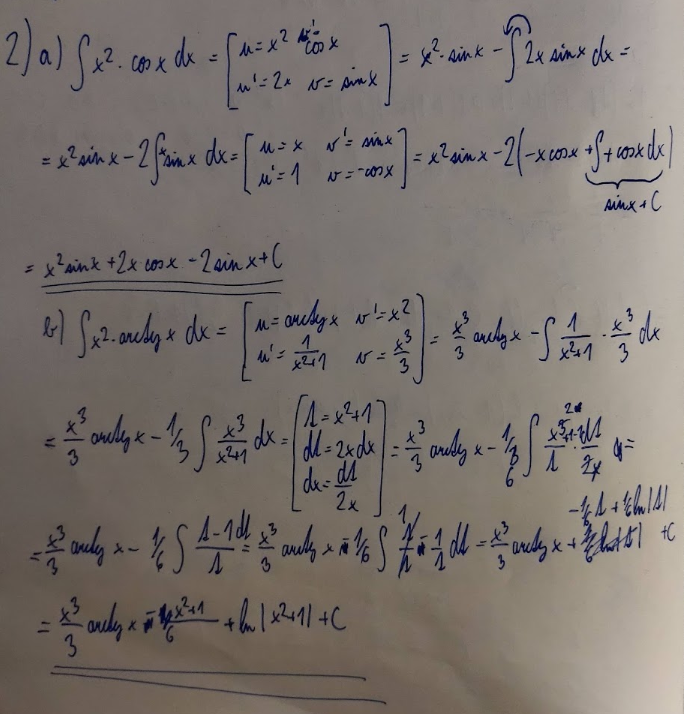 2) a) ∫ x² · cos x dx = [ u = x² v' = cos x ; u' = 2x v = sin x ] = x² · sin x - ∫ 2x sin x dx =
= x² sin x - 2 ∫ x sin x dx = [ u = x v' = sin x ; u' = 1 v = -cos x ] = x² sin x - 2(-x cos x + ∫ + cos x dx)
sin x + C
= x² sin x + 2x cos x - 2 sin x + C
b) ∫ x² · arctg x dx = [ u = arctg x v' = x² ; u' = 1/(x²+1) v = x³/3 ] = x³/3 arctg x - ∫ 1/(x²+1) · x³/3 dx
= x³/3 arctg x - 1/3 ∫ x³/(x²+1) dx = [ t = x²+1 ; dt = 2x dx ; dx = dt/2x ] = x³/3 arctg x - 1/6 ∫
= x³/3 arctg x - 1/6 ∫ (t-1)/t dt = x³/3 arctg x - 1/6 ∫ 1 - 1/t dt = x³/3 arctg x - 1/6 t + 1/6 ln|t| + C
= x³/3 arctg x - (x²+1)/6 + ln|x²+1| + C